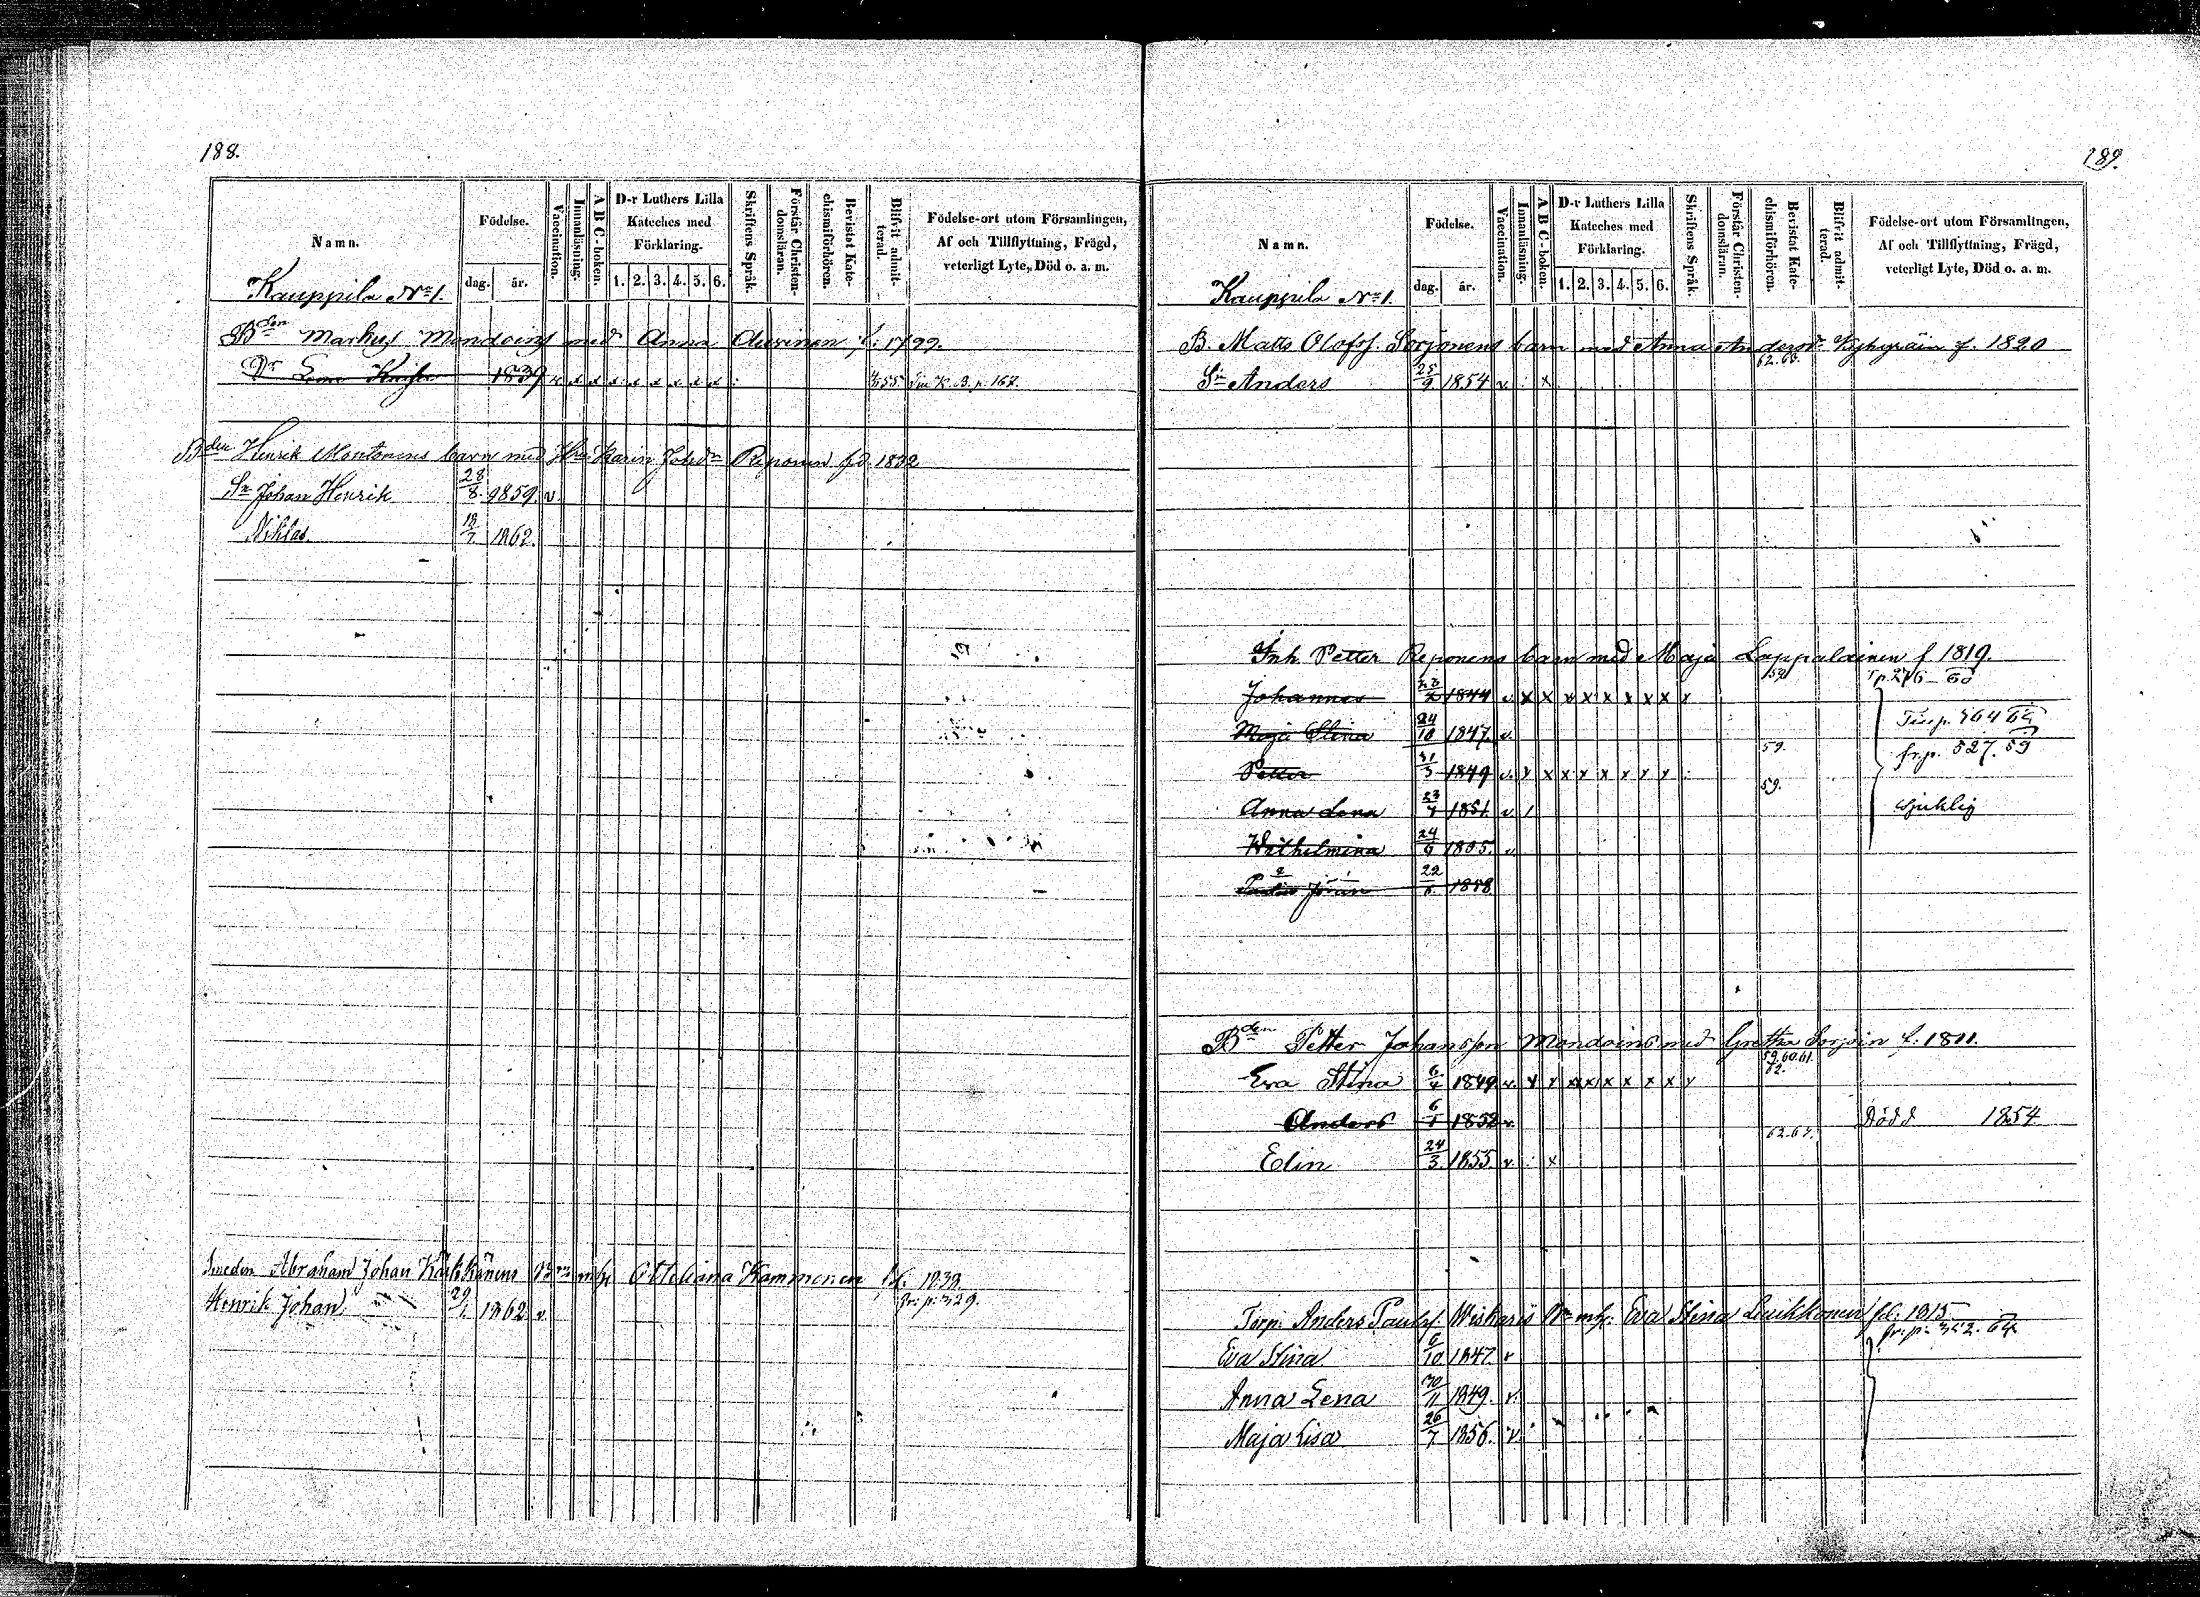 188.
Namn.
Födelse.
dag. år.
Vaccination.
Innanläsning.
A B C-boken.
D-r Luthers Lilla Kateches med Förklaring.
1. 2. 3. 4. 5. 6.
Skriftens Språk.
Förstår Christendomsläran.
Bevistat Katechismiförhören.
Blifvit admitterad.
Födelse-ort utom Församlingen, Af och Tillflyttning, Frägd, veterligt Lyte, Död o. a. m.
Kauppila No 1.
Bden Markus Mondoins med Anna Auvinen f. 1799.
Dr 1839 v x x x x x x x x 55 K. B. p. 167.
Bden Henrik Montonens barn med Hru Karin Johdr Reponen fd. 1832
Sn Johan Henrik 28/8. 1859. v.
Niklas. 18/7 1862.
Abraham Johan Käkkänens Bn mhu Ottiliana Kammonen fd. 1839.
Henrik Johan 29/1. 1862 v. fr. p. 329.
189.
Namn.
Födelse.
dag. år.
Vaccination.
Innanläsning.
A B C-boken.
D-r Luthers Lilla Kateches med Förklaring.
1. 2. 3. 4. 5. 6.
Skriftens Språk.
Förstår Christendomsläran.
Bevistat Katechismiförhören.
Blifvit admitterad.
Födelse-ort utom Församlingen, Af och Tillflyttning, Frägd, veterligt Lyte, Död o. a. m.
Kauppila No 1.
B. Matts Olofs. Sorjonens barn med Anna Andersdr f. 1820
Sn Anders 25/9 1854 v. : x 62.63.
Inh. Petter Reponens barn med Maja Lappalainen f 1819.
Johannes 1844 v. x x x x x x x x x 59 p. 276 60
Maja Stina 24/10 1847. v. p. 564 62
Petter 31/3 1849 v. x x x x x x x x : 59. fr.p. 527. 59
Anna Lena 23/4 1851. v / 59. sjuklig
Wilhelmina 24/6 1855. v
22 1858
Bden Petter Johansson Mondoins med Gretha Sorjoin f. 1811.
Eva Stina 6/4 1849 v. x x x x x x x x x 59.60.61. 62.
Anders 6/1 1852 v. Död 1854
Elin 24/3. 1855 v. : x 62.67.
Torp. Anders Paulss. Bn mhu. Eva Stina Luikkonen fd. 1815
fr. p. 352. 64
Eva Stina 6/10 1847. v
Anna Lena 30/11 1849. v.
Maja Lisa 26/7 1856. v.